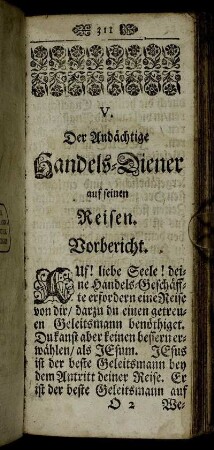 311
V.
Der Andächtige
Handels-Diener
auf seinen
Reisen.
Vorbericht.
AUf! liebe Seele! dei-
ne Handels-Geschäff-
te erfordern eine Reise
von dir/ darzu du einen getreu-
en Geleitsmann benöthiget.
Du kanst aber keinen bessern er-
wählen/ als JEsum. JEsus
ist der beste Geleitsmann bey
dem Antritt deiner Reise. Er
ist der beste Geleitsmann auf
O 2 We-